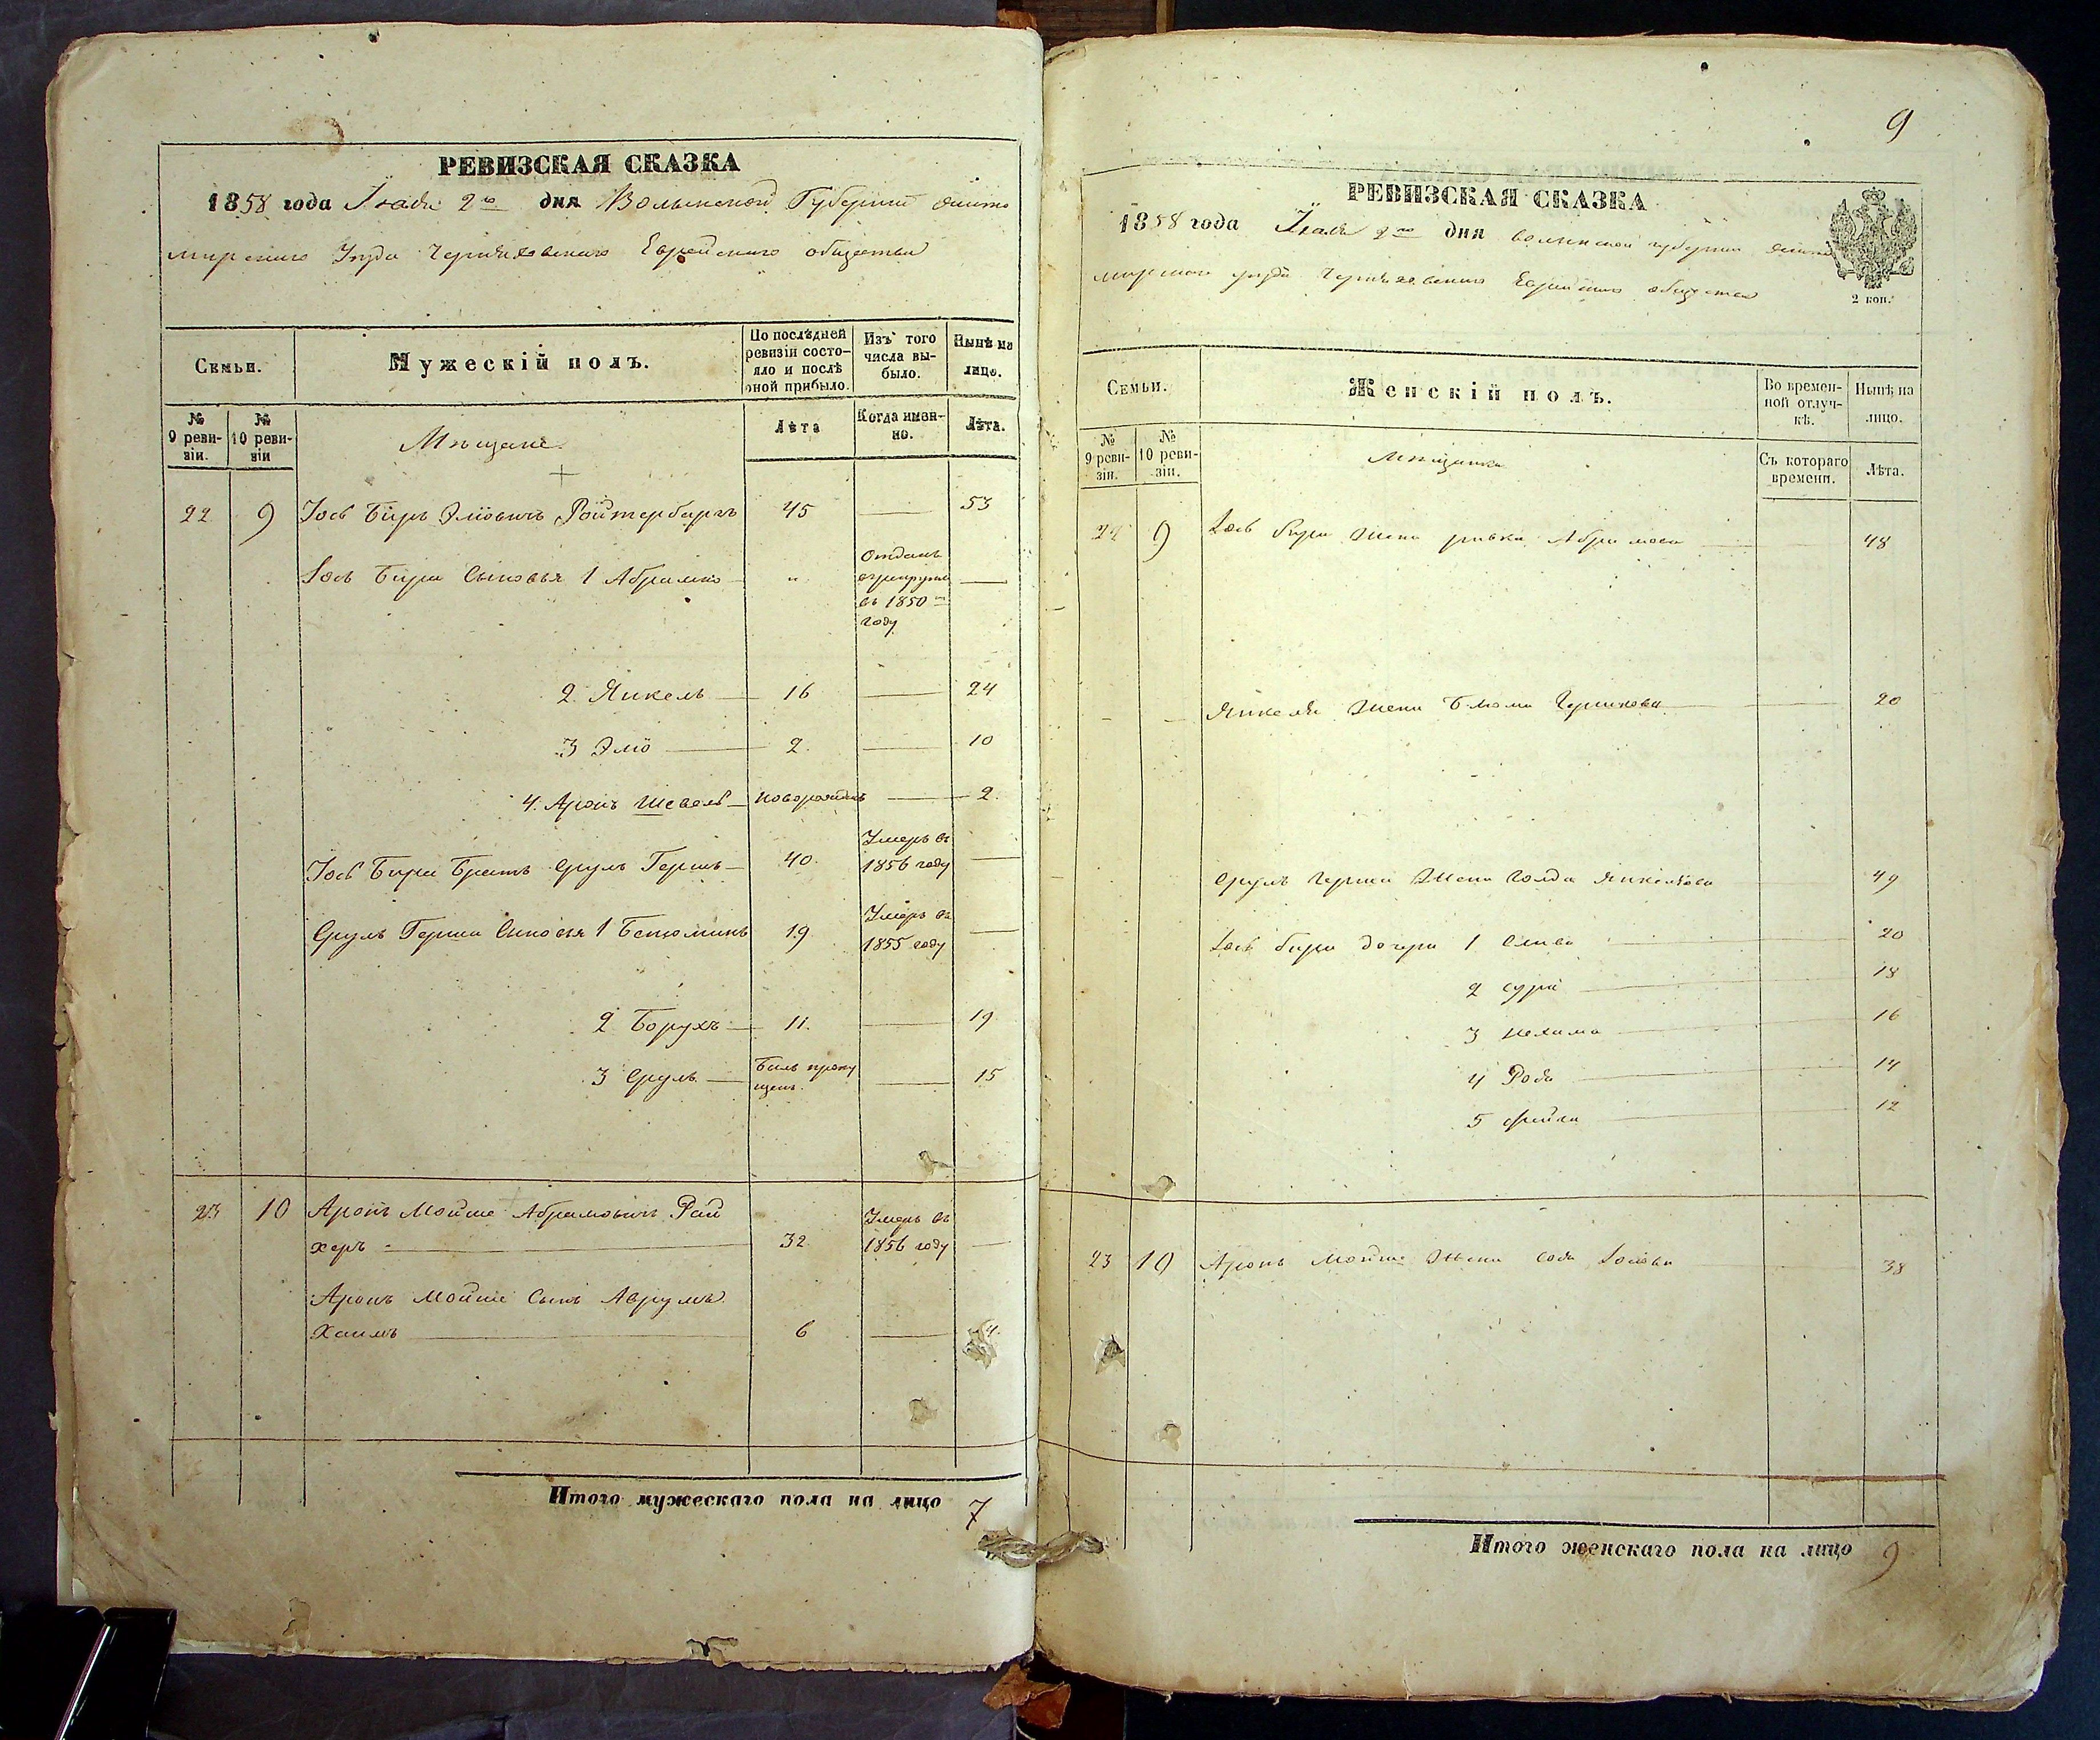 РЕВИЗСКАЯ СКАЗКА
1858 года Іюля 2го дня Волынской Губерніи Жито
мирскаго Уезда Черняховскаго Еврейскаго общества
Семьи.
Мужескій полъ.
По послѣдней ревизіи состо-
яло и послѣ оной прибыло.
Изъ того числа вы-
было.
Нынѣ на лицо.
№ 9 реви-
зіи.
№ 10 реви-
зіи
Мещане
Лѣта
Когда имен-
но.
Лѣта.
22 9 Іось Беръ Эліовичъ Ройтербаргъ 45 — 53
Іось Бера Сыновья 1 Абрамко — " Отданъ
в рекруты —
въ 1850м
году
2. Янкель — 16 — 24
3 Эліо — 2. — 10
4. Аронъ Шевель — новорожденъ — 2.
Іось Бера Братъ Сруль Гершъ — 40. Умеръ въ
1856 году —
Сруль Герша Сыновья 1 Беньоминъ 19 Умеръ въ
1855 году —
2 Борухъ — 11. — 19
3 Сруль — Былъ пропу
щенъ. — 15
23 10 Аронъ Мойше Абрамовичъ Рай
херъ — 32. Умеръ въ
1856 году —
Аронъ Мойше Сынъ Аврумъ
Хаимъ — 6 — 4.
Итого мужескаго пола на лицо 7
9
РЕВИЗСКАЯ СКАЗКА
1858 года Іюля 2го дня Волынской губерніи Жито
мирскаго уезда Черняховскаго Еврейскаго общества
2 коп.
Семьи.
Женскій полъ.
Во времен-
ной отлуч-
кѣ.
Нынѣ на лицо.
№ 9 реви-
зіи.
№ 10 реви-
зіи.
Мещанки
Съ котораго времени.
Лѣта.
22 9 Іось Бера Жена Ривка Абрамова — 48
Янкеля Жена Блюма Гершкова — 20
Сруль Герша Жена Голда Янкелева — 49
Іось Бера дочери 1 Слива — 20
2 Сура — 18
3 Нехама — 16
4 Роза — 14
5 Фейга — 12
23 10 Аронъ Мойше Жена Сося Іосева — 38
Итого женскаго пола на лицо 9